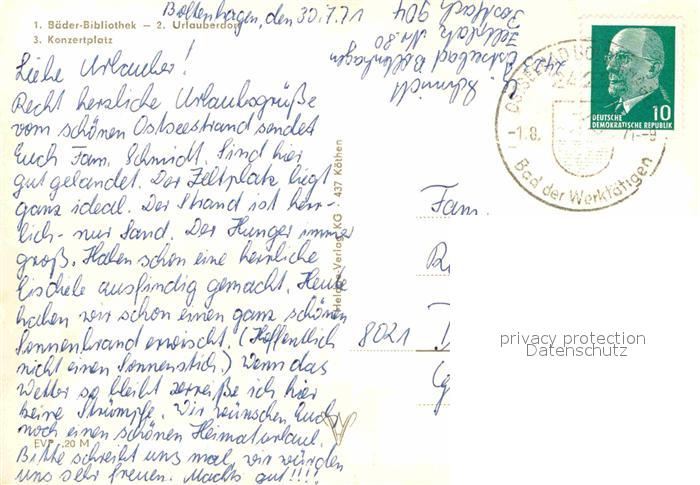 Boltenhagen, den 30.7.71
1. Bäder-Bibliothek — 2. Urlauberdorf
3. Konzertplatz
Liebe Urlauber!
Recht herzliche Urlaubsgrüße
vom schönen Ostseestrand sendet
Euch Fam. Schmidt. Sind hier
gut gelandet. Der Zeltplatz liegt
ganz ideal. Der Strand ist herr-
lich - nur Sand. Der Hunger immer
groß. Haben schon eine herrliche
Eisdiele ausfindig gemacht. Heute
haben wir schon einen ganz schönen
Sonnenbrand erwischt. (Hoffentlich
nicht einen Sonnenstich.) Wenn das
Wetter so bleibt zerreiße ich hier
keine Strümpfe. Wir wünschen Euch
noch einen schönen Heimaturlaub.
Bitte schreibt uns mal, wir würden
uns sehr freuen. Machts gut!!!!
EVP ,20 M
Schmidt
2423 Ostseebad Boltenhagen
Zeltplatz Nr. 80
Postfach 904
Verlag KG · 437 Köthen
DEUTSCHE
DEMOKRATISCHE REPUBLIK
10
OSTSEEBAD
242
-1.8.
71-9
Bad der Werktätigen
Fam.
8021
privacy protection
Datenschutz